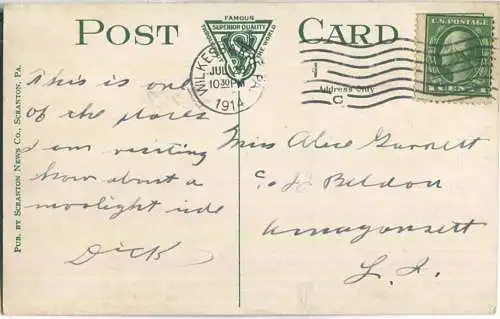 POST CARD
FAMOUS
SUPERIOR QUALITY
THE WORLD
WILKES
JUL
10-30 PM
1914
PA.
U.S. POSTAGE
Address Only
C
PUB. BY SCRANTON NEWS CO., SCRANTON, PA.
This is one
of the places
I am visiting
how about a
moolight ride
Dick
Miss Alice Garnett
c/o J Beldon
Amagansett
L. I.